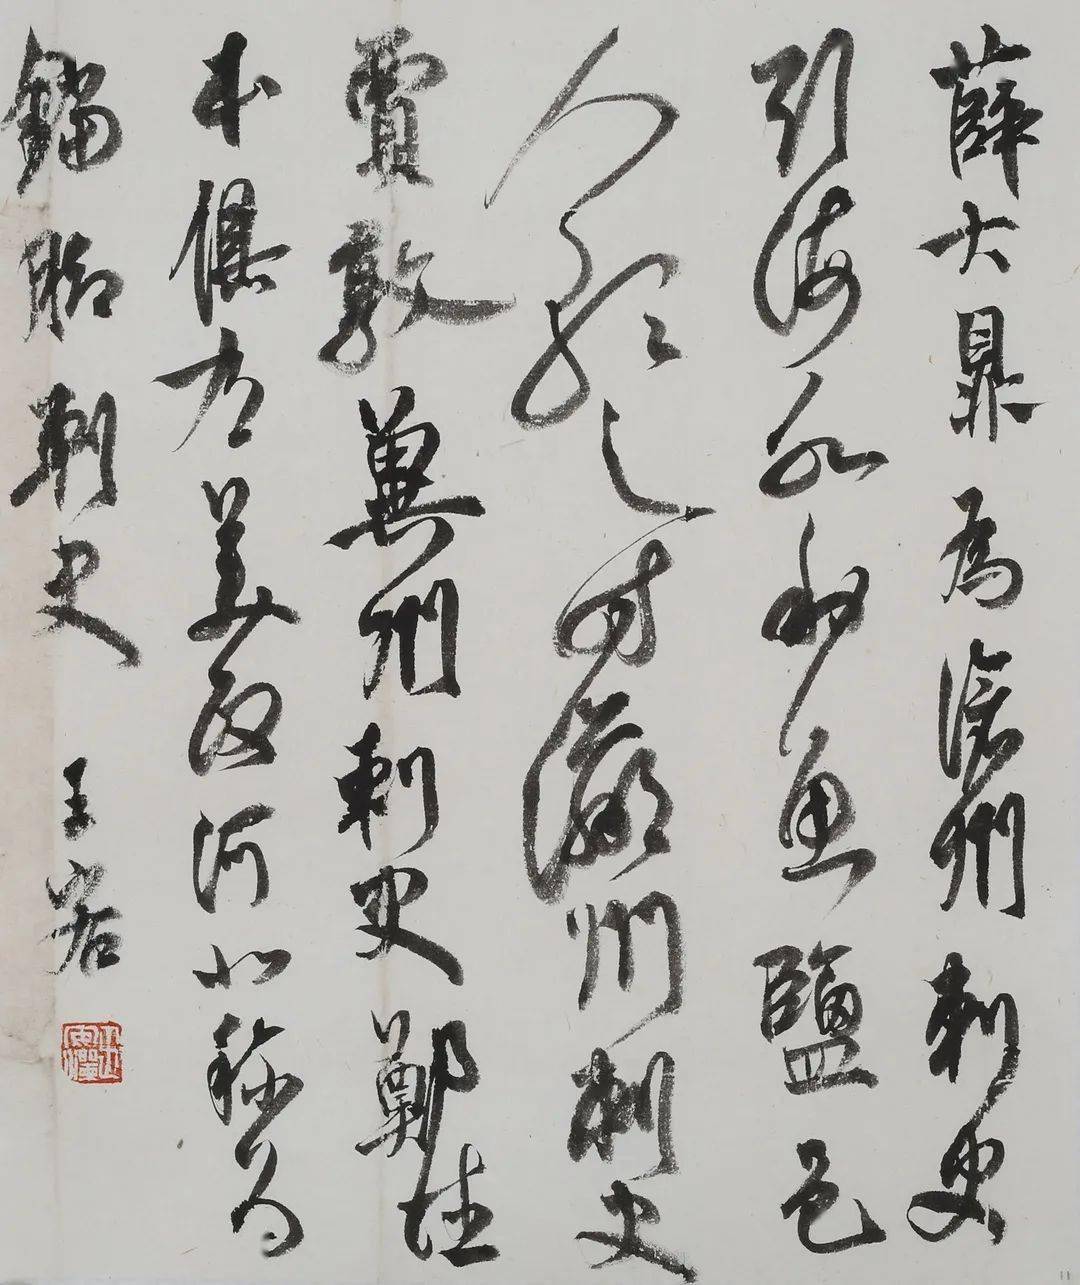 薛大鼎為滄州刺史
引海水利魚鹽邑
人歌之時瀛州刺史
賈敦冀州刺史鄭
本俱有美政河北稱為
鐺腳刺史 王